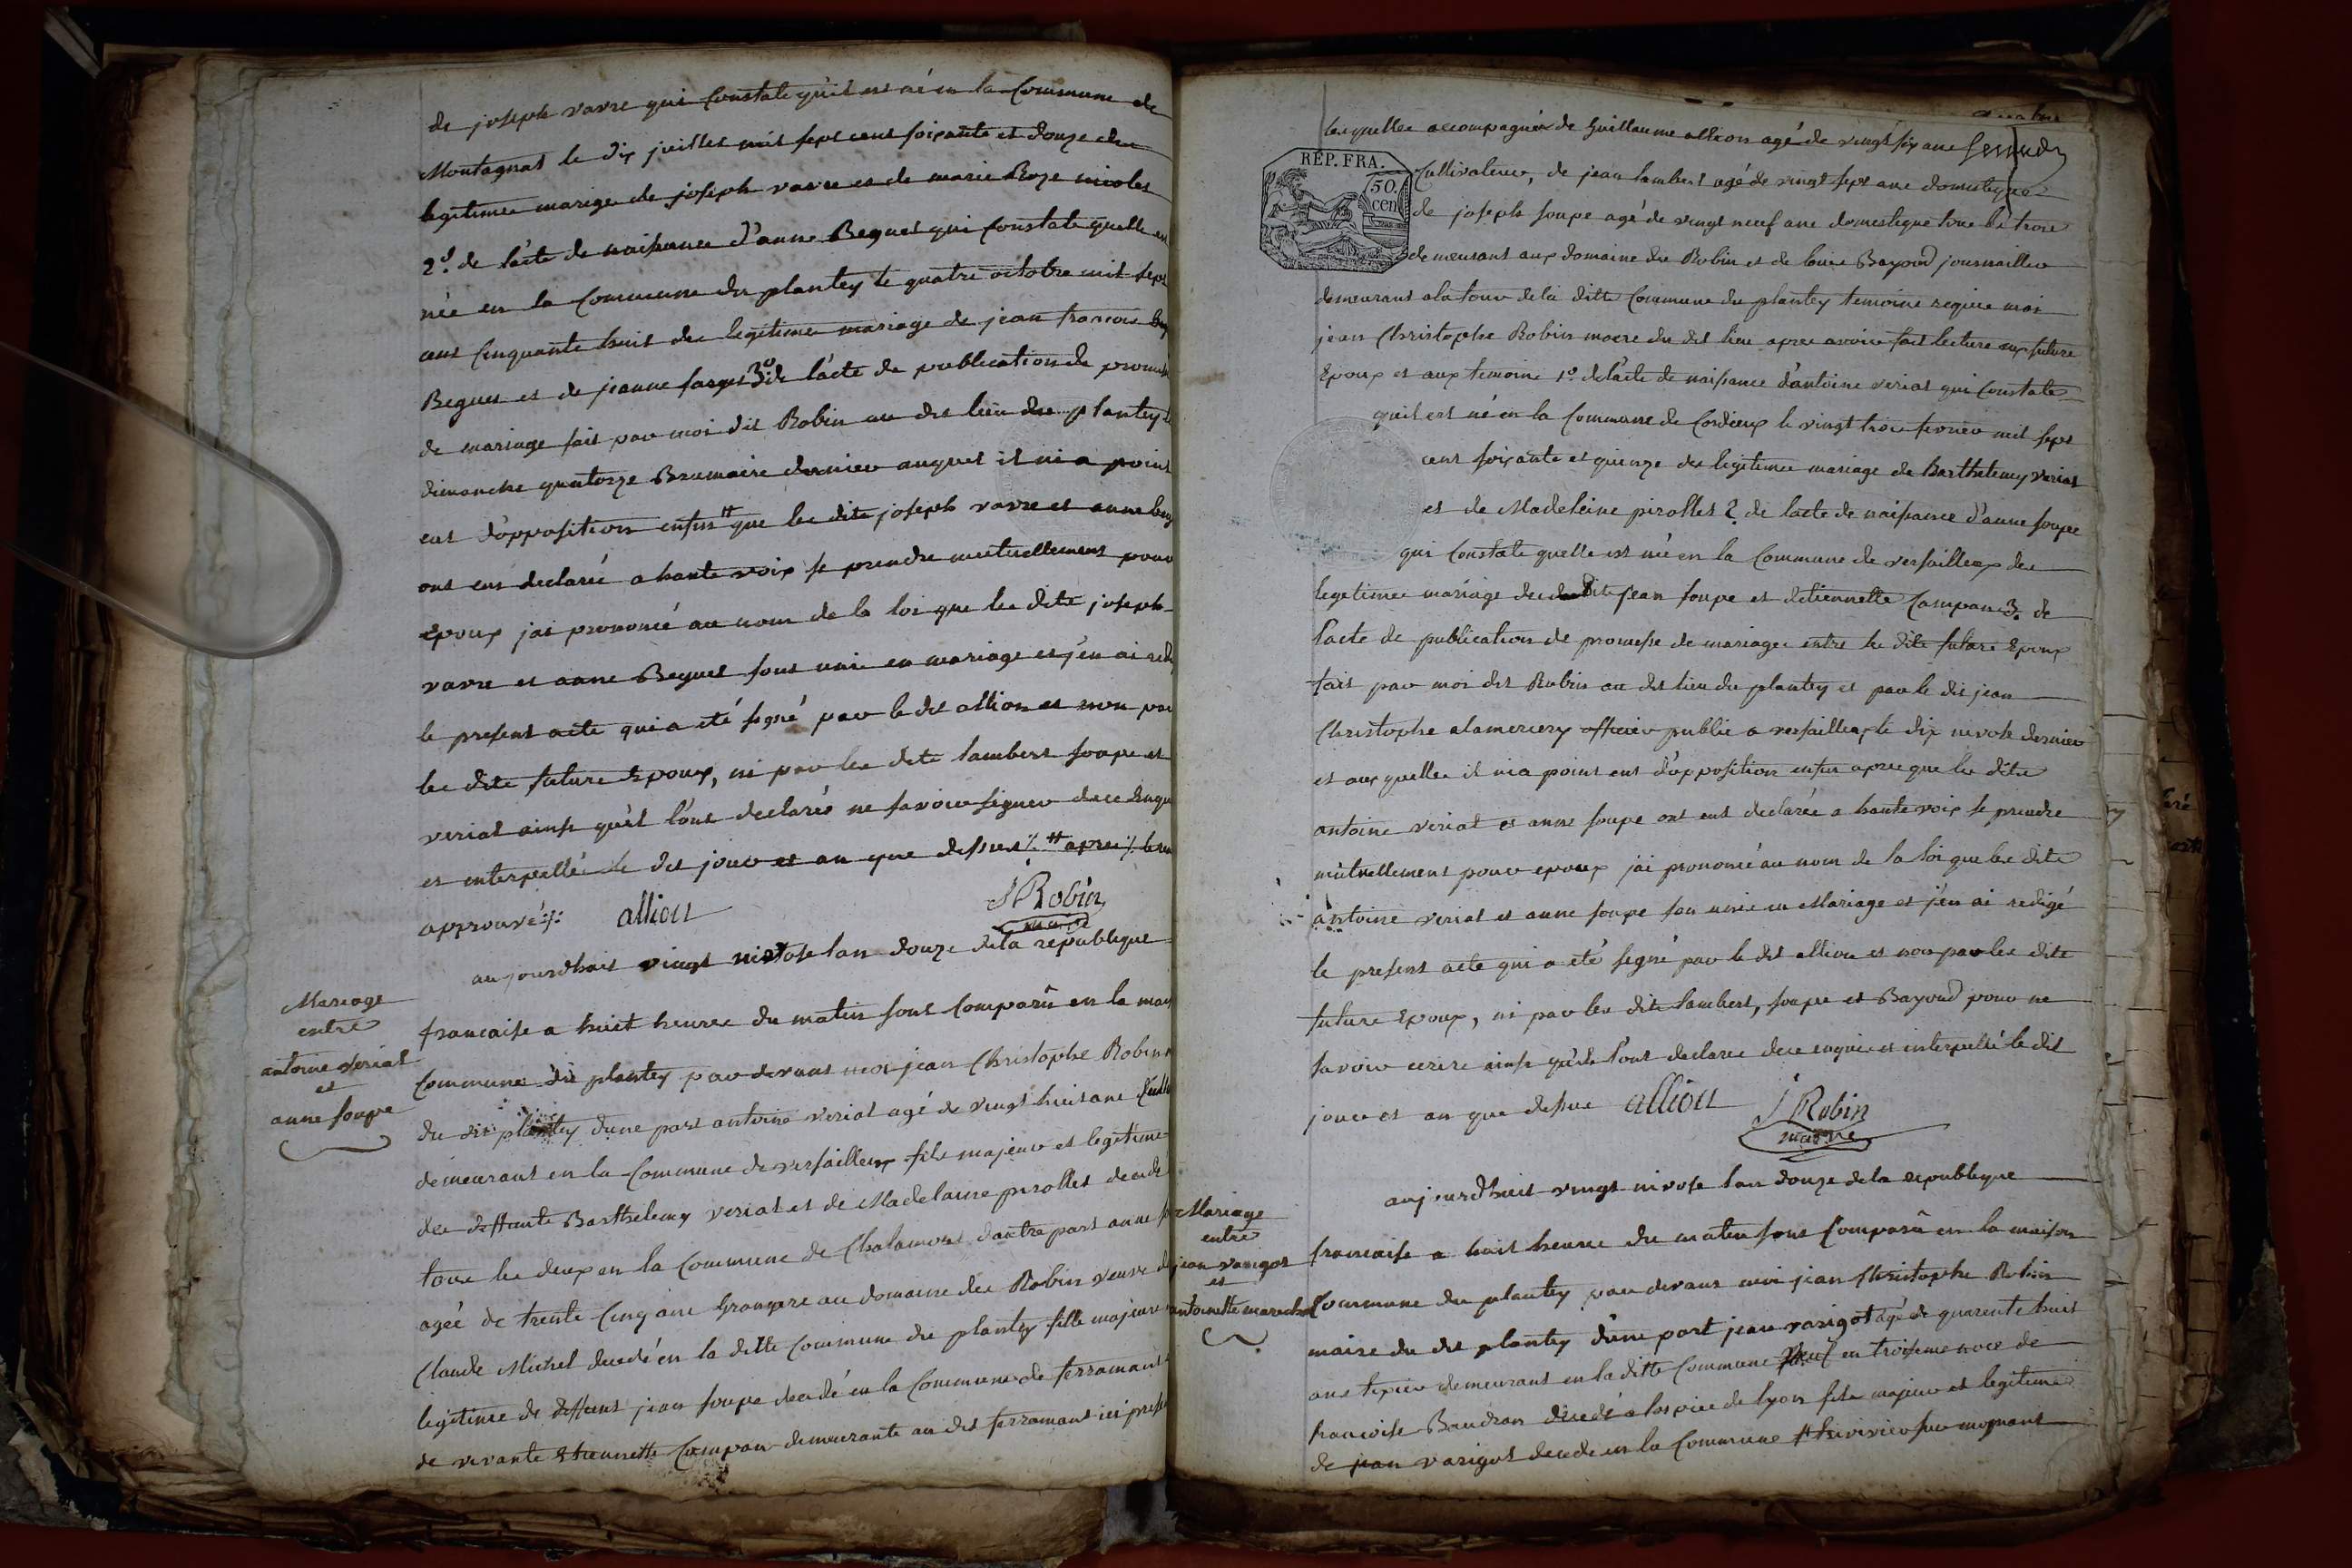 de joseph vavre qui Constate quil est né en la Commune de
Montagnat le dix juillet mil sept cent soixante et douze du
legitime mariage de joseph vavre et de marie Roze nicolet
2º. de lacte de naissance d'anne Beguet qui Constate quelle est
née en la Commune du plantey le quatre octobre mil sept
cent Cinquante huit du legitime mariage de jean francois
Beguet et de jeanne farget 3º de lacte de publication de promesse
de mariage fait par moi dit Robin au dit lieu du plantey le
dimanche quatorze Brumaire dernier auquel il ni a point
eut d'opposition enfin # que les dits joseph vavre et anne
ont eut declaré a haute voix se prendre mutuellement pour
epoux jai prononcé au nom de la loi que les dits joseph
vavre et anne Beguet sont unis en mariage et j'en ai
le present acte qui a eté signé par le dit allion et non par
les dits future Epoux, ni par les dits lambert soupe et
veriat ainsi qu'il l'ont declaré ne savoir signer de ce
et interpellé le dit jour et an que dessus % # apres %
approuvé % allion J Robin
maire
aujourdhuit vingt nivose lan douze de la republique
Mariage
entre
antoine veriat
et
anne soupe
francaise a huit heures du matin sont Comparû en la
Commune du plantey par devant moi jean Christophe Robin
du dit plantey dune part antoine veriat agé de vingt huit ans
demeurant en la Commune de versailleux fils majeur et legitime
des deffunts Barthelemy veriat et de Madelaine pirollet decedé
tous les deux en la Commune de Chalamont dautre part anne
agée de trente Cinq ans Grangere au domaine des Robin veuve de
Claude Michel decedé en la ditte Commune du plantey fille majeure
legitime de deffunt jean soupe decedé en la Commune de ferramant
de vivante Etiennette Campan demeurante au dit ferramant ici
lesquelles accompagnés de Guillaume allion agé de vingt six ans
REP. FRA.
50.
cen
Cultivateur, de jean lambert agé de vingt sept ans domestique
de joseph soupe agé de vingt neuf ans domestique tous les trois
demeurant aux domaine des Robin et de louis Bayoud journaillier
demeurant a la tour de la ditte Commune du plantey temoins requis moi
jean Christophe Robin maire du dit lieu apres avoir fait lecture aux future
Epoux et aux temoins 1º. de lacte de naissance d'antoine veriat qui Constate
quil est né en la Commune de Cordieux le vingt trois fevrier mil sept
cent soixante et quinze du legitime mariage de Barthelemy veriat
et de Madeleine pirollet 2. de lacte de naissance d'anne soupe
qui Constate quelle est né en la Commune de versailleux du
legitime mariage des dits jean soupe et detiennette Campan 3. de
lacte de publication de promesse de mariage entre les dits future Epoux
fait par moi dit Robin au dit lieu du plantey et par le dit jean
Christophe alamercery officier public a versailleux le dix nivose dernier
et auxquelles il nia point eut d'opposition enfin apres que les dits
antoine veriat et anne soupe ont eut declarée a haute voix se prendre
mutuellement pour epoux jai prononcé au nom de la loi que les dits
antoine veriat et anne soupe son unis en Mariage et j'en ai redigé
le present acte qui a eté signé par le dit allion et non par les dits
future Epoux, ni par les dits lambert, soupe et Bayoud pour ne
savoir ecrire ainsi quils l'ont declaree de ce enquis et interpellé le dit
jour et an que dessus allion J Robin
maire
aujourdhuit vingt nivose lan douze de la republique
Mariage
entre
jean varigot
et
antoinette marechal
francaise a huit heures du matin sont Comparû en la maison
Commune du plantey par devant moi jean Christophe Robin
maire du dit plantey d'une part jean varigot agé de quarente huit
ans texier demeurant en la ditte Commune veuf en troisieme noce de
francoise Baudran decedé a lospice de lyon fils majeur et legitime
de jean varigot decedé en la Commune